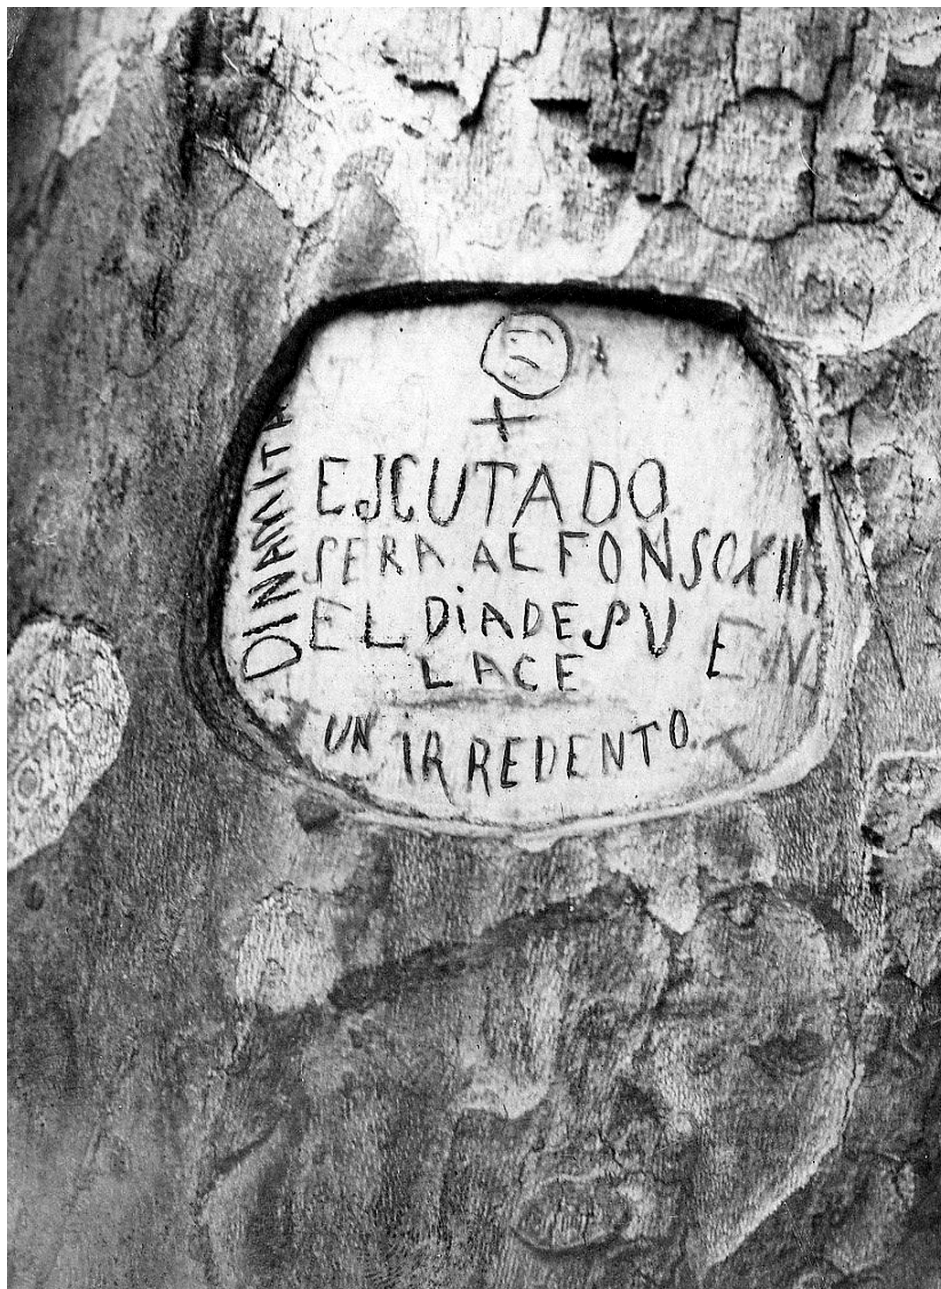 DINAMITA
EJCUTADO
SERA ALFONSO XIII
EL DiA DE SU EN
LACE
UN IRREDENTO